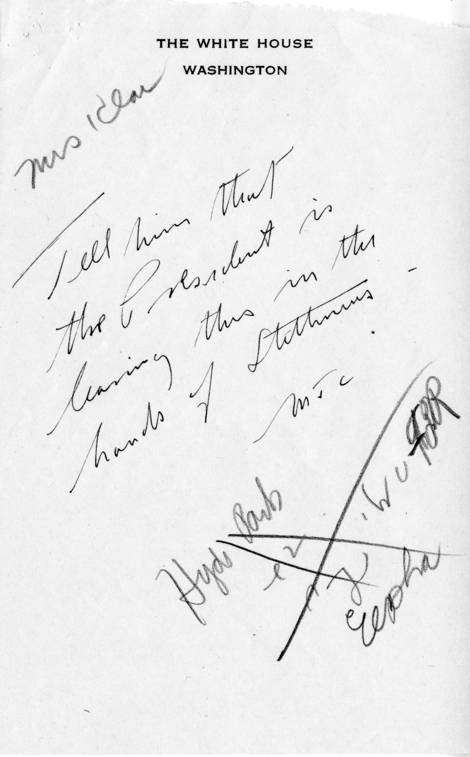 THE WHITE HOUSE
WASHINGTON
Mrs
Tell him that
the President is
leaving this in the
hands of Stettinius -
Hyde Park